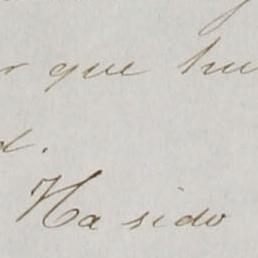 r que hu
d.
Ha sido